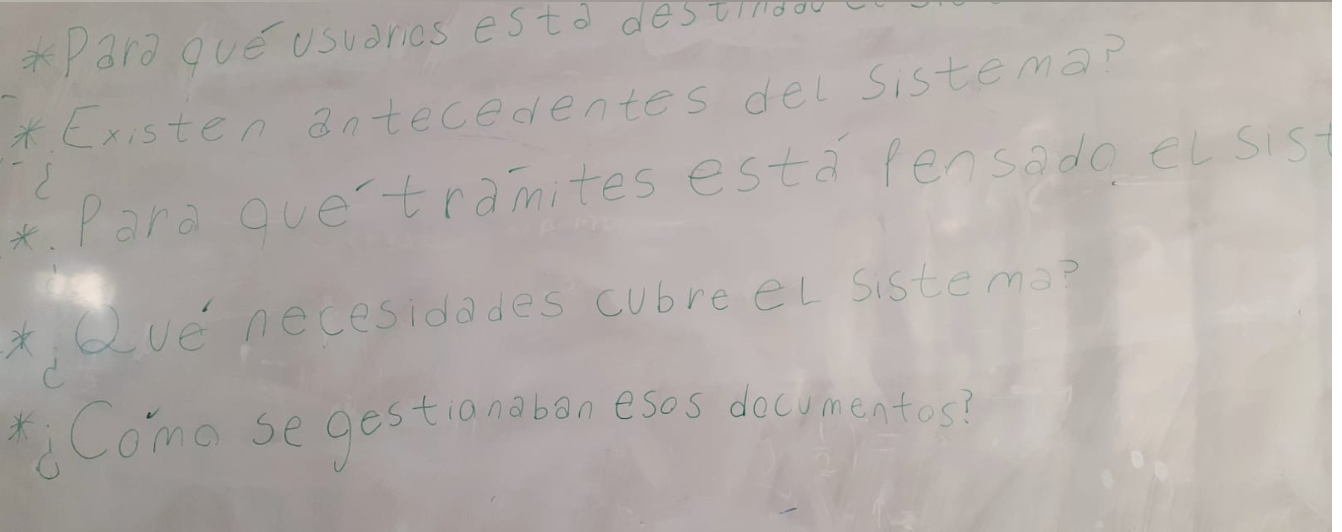 * Para qué usuarios está destinado el
* ¿Existen antecedentes del sistema?
* ¿Para qué trámites está pensado el sist
* ¿Qué necesidades cubre el sistema?
* ¿Cómo se gestionaban esos documentos?